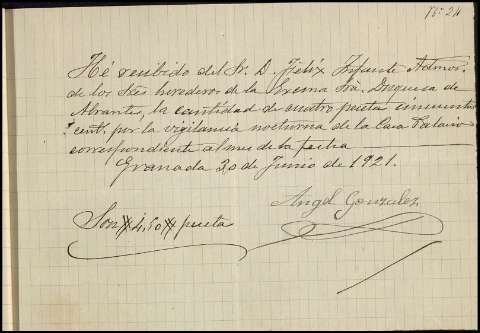 Nº 24
Hé recibido del Sr. D. Félix Infante Admor.
de los Sres herederos de la Excma Sra. Duquesa de
Abrantes, la cantidad de cuatro pesetas cincuenta
cent. por la vigilancia nocturna de la Casa Palacio
correspondiente al mes de la fecha
Granada 30 de Junio de 1921.
Angel Gonzalez
Son # 4,50 # pesetas